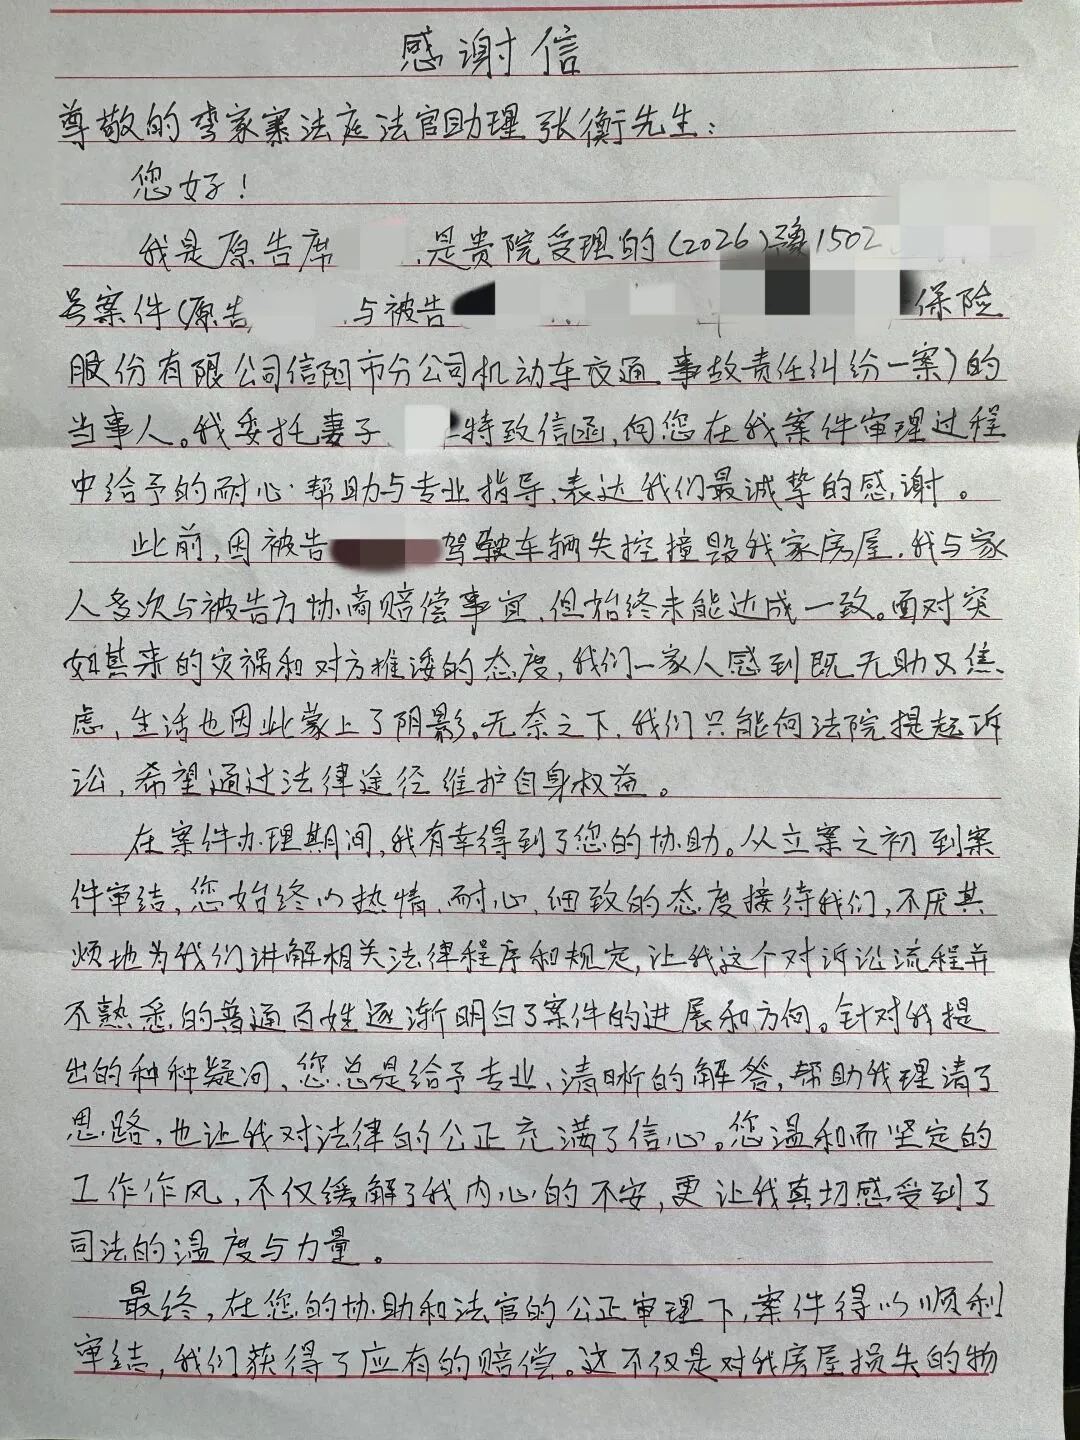 感谢信
尊敬的李家寨法庭法官助理张衡先生：
您好！
我是原告席 ，是贵院受理的（2026）豫1502
号案件（原告 与被告 保险
股份有限公司信阳市分公司机动车交通事故责任纠纷一案）的
当事人。我委托妻子 特致信函，向您在我案件审理过程
中给予的耐心帮助与专业指导，表达我们最诚挚的感谢。
此前，因被告 驾驶车辆失控撞毁我家房屋，我与家
人多次与被告方协商赔偿事宜，但始终未能达成一致。面对突
如其来的灾祸和对方推诿的态度，我们一家人感到既无助又焦
虑，生活也因此蒙上了阴影。无奈之下，我们只能向法院提起诉
讼，希望通过法律途径维护自身权益。
在案件办理期间，我有幸得到了您的协助。从立案之初到案
件审结，您始终以热情、耐心、细致的态度接待我们，不厌其
烦地为我们讲解相关法律程序和规定，让我这个对诉讼流程并
不熟悉的普通百姓逐渐明白了案件的进展和方向。针对我提
出的种种疑问，您总是给予专业、清晰的解答，帮助我理清了
思路，也让我对法律的公正充满了信心。您温和而坚定的
工作作风，不仅缓解了我内心的不安，更让我真切感受到了
司法的温度与力量。
最终，在您的协助和法官的公正审理下，案件得以顺利
审结，我们获得了应有的赔偿。这不仅是对我房屋损失的物